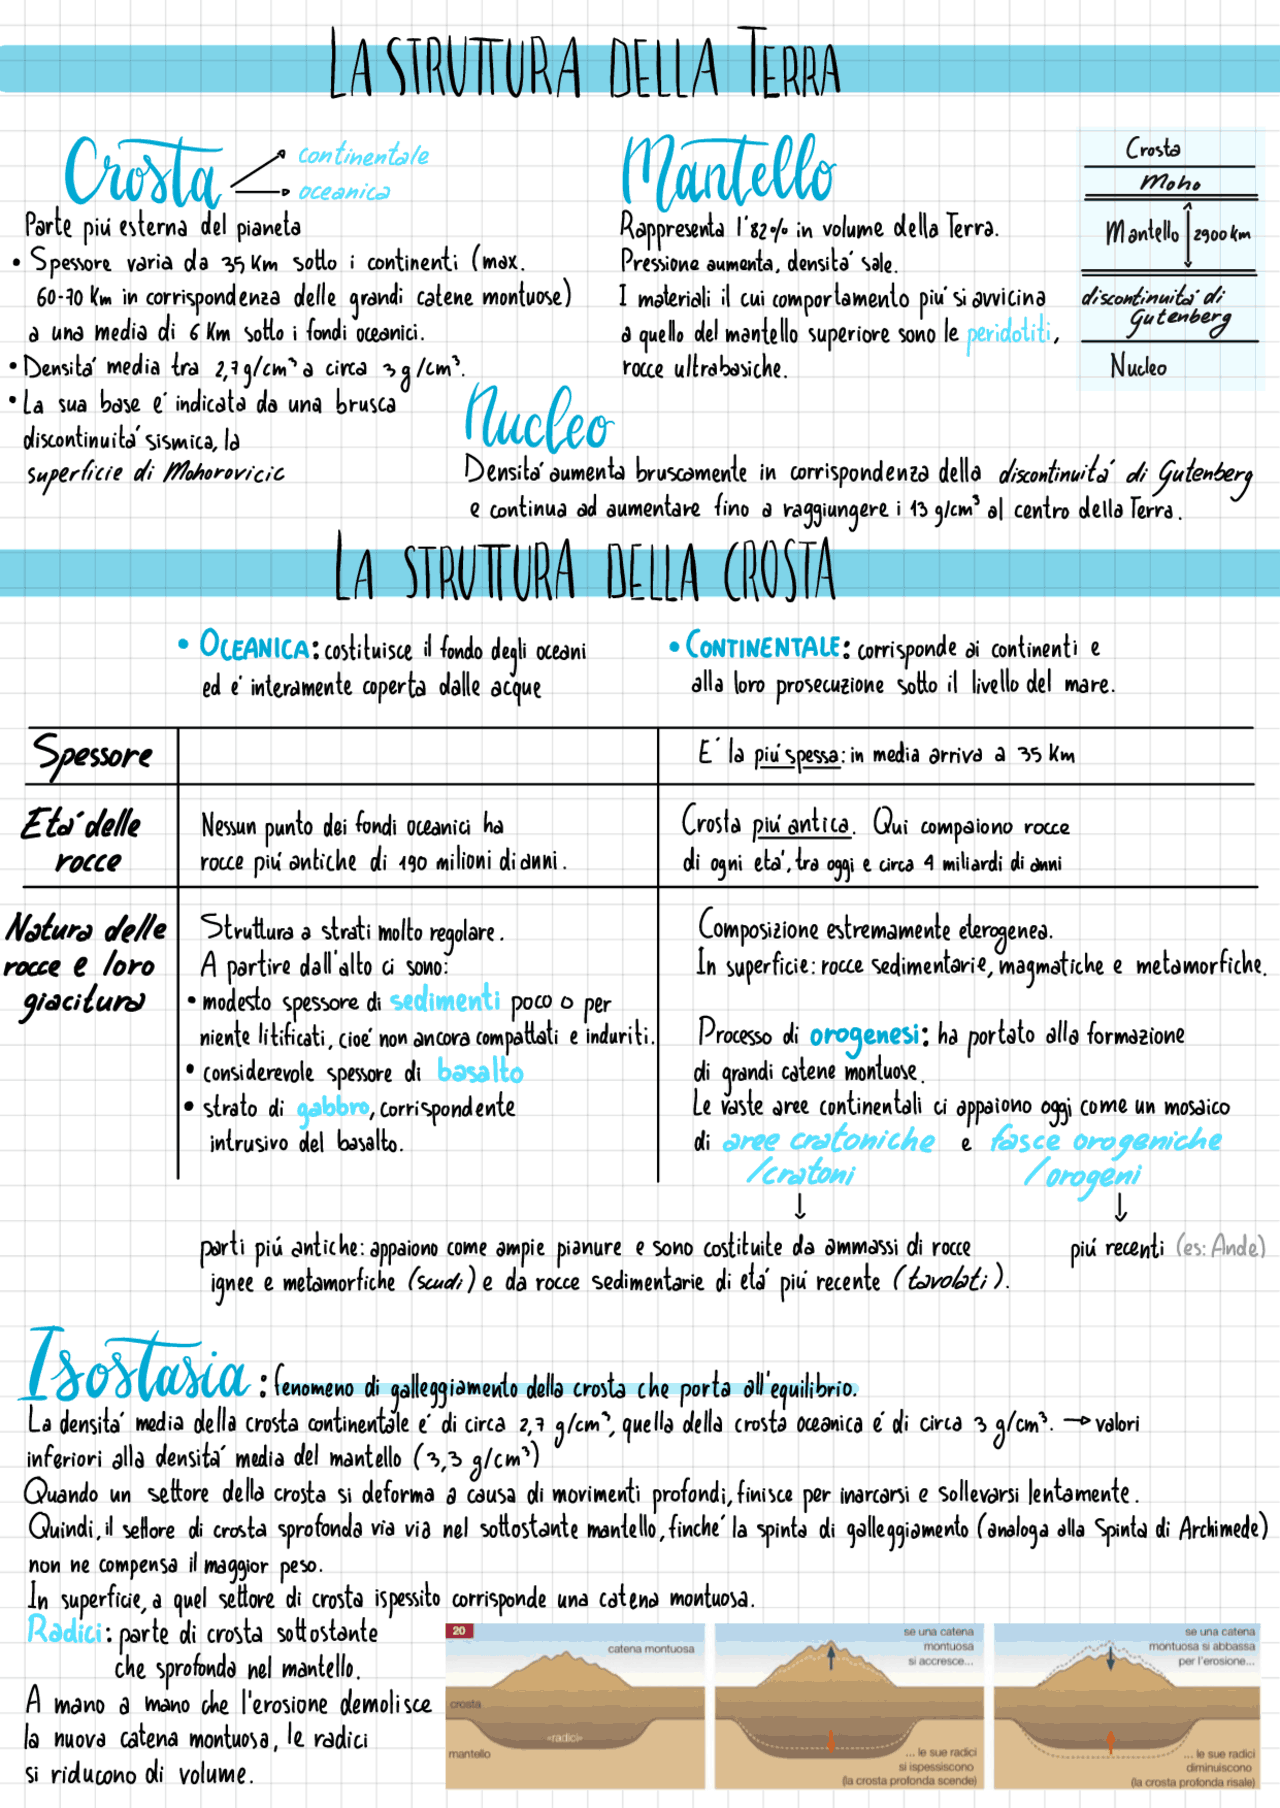 LA STRUTTURA DELLA TERRA
Crosta
continentale
oceanica
Parte piú esterna del pianeta
• Spessore varia da 35 Km sotto i continenti (max.
60-70 Km in corrispondenza delle grandi catene montuose)
a una media di 6 Km sotto i fondi oceanici.
• Densitá media tra 2,7 g/cm³ a circa 3 g/cm³.
• La sua base é indicata da una brusca
discontinuitá sismica, la
superficie di Mohorovicic
Mantello
Rappresenta l'82% in volume della Terra.
Pressione aumenta, densitá sale.
I materiali il cui comportamento piú si avvicina
a quello del mantello superiore sono le peridotiti,
rocce ultrabasiche.
Crosta
Moho
Mantello 2900 km
discontinuitá di
Gutenberg
Nucleo
Nucleo
Densitá aumenta bruscamente in corrispondenza della discontinuitá di Gutenberg
e continua ad aumentare fino a raggiungere i 13 g/cm³ al centro della Terra.
LA STRUTTURA DELLA CROSTA
• OCEANICA: costituisce il fondo degli oceani
ed é interamente coperta dalle acque
• CONTINENTALE: corrisponde ai continenti e
alla loro prosecuzione sotto il livello del mare.
Spessore
E' la piú spessa: in media arriva a 35 Km
Etá delle
rocce
Nessun punto dei fondi oceanici ha
rocce piú antiche di 190 milioni di anni.
Crosta piú antica. Qui compaiono rocce
di ogni etá, tra oggi e circa 4 miliardi di anni
Natura delle
rocce e loro
giacitura
Struttura a strati molto regolare.
A partire dall'alto ci sono:
• modesto spessore di sedimenti poco o per
niente litificati, cioé non ancora compattati e induriti.
• considerevole spessore di basalto
• strato di gabbro, corrispondente
intrusivo del basalto.
Composizione estremamente eterogenea.
In superficie: rocce sedimentarie, magmatiche e metamorfiche.
Processo di orogenesi: ha portato alla formazione
di grandi catene montuose.
Le vaste aree continentali ci appaiono oggi come un mosaico
di aree cratoniche e fasce orogeniche
/cratoni /orogeni
parti piú antiche: appaiono come ampie pianure e sono costituite da ammassi di rocce
ignee e metamorfiche (scudi) e da rocce sedimentarie di etá piú recente (tavolati).
piú recenti (es: Ande)
Isostasia: fenomeno di galleggiamento della crosta che porta all'equilibrio.
La densitá media della crosta continentale é di circa 2,7 g/cm³, quella della crosta oceanica é di circa 3 g/cm³. → valori
inferiori alla densitá media del mantello (3,3 g/cm³)
Quando un settore della crosta si deforma a causa di movimenti profondi, finisce per inarcarsi e sollevarsi lentamente.
Quindi, il settore di crosta sprofonda via via nel sottostante mantello, finché la spinta di galleggiamento (analoga alla Spinta di Archimede)
non ne compensa il maggior peso.
In superficie, a quel settore di crosta ispessito corrisponde una catena montuosa.
Radici: parte di crosta sottostante
che sprofonda nel mantello.
A mano a mano che l'erosione demolisce
la nuova catena montuosa, le radici
si riducono di volume.
20
catena montuosa
crosta
«radici»
mantello
se una catena
montuosa
si accresce...
... le sue radici
si ispessiscono
(la crosta profonda scende)
se una catena
montuosa si abbassa
per l'erosione...
... le sue radici
diminuiscono
(la crosta profonda risale)